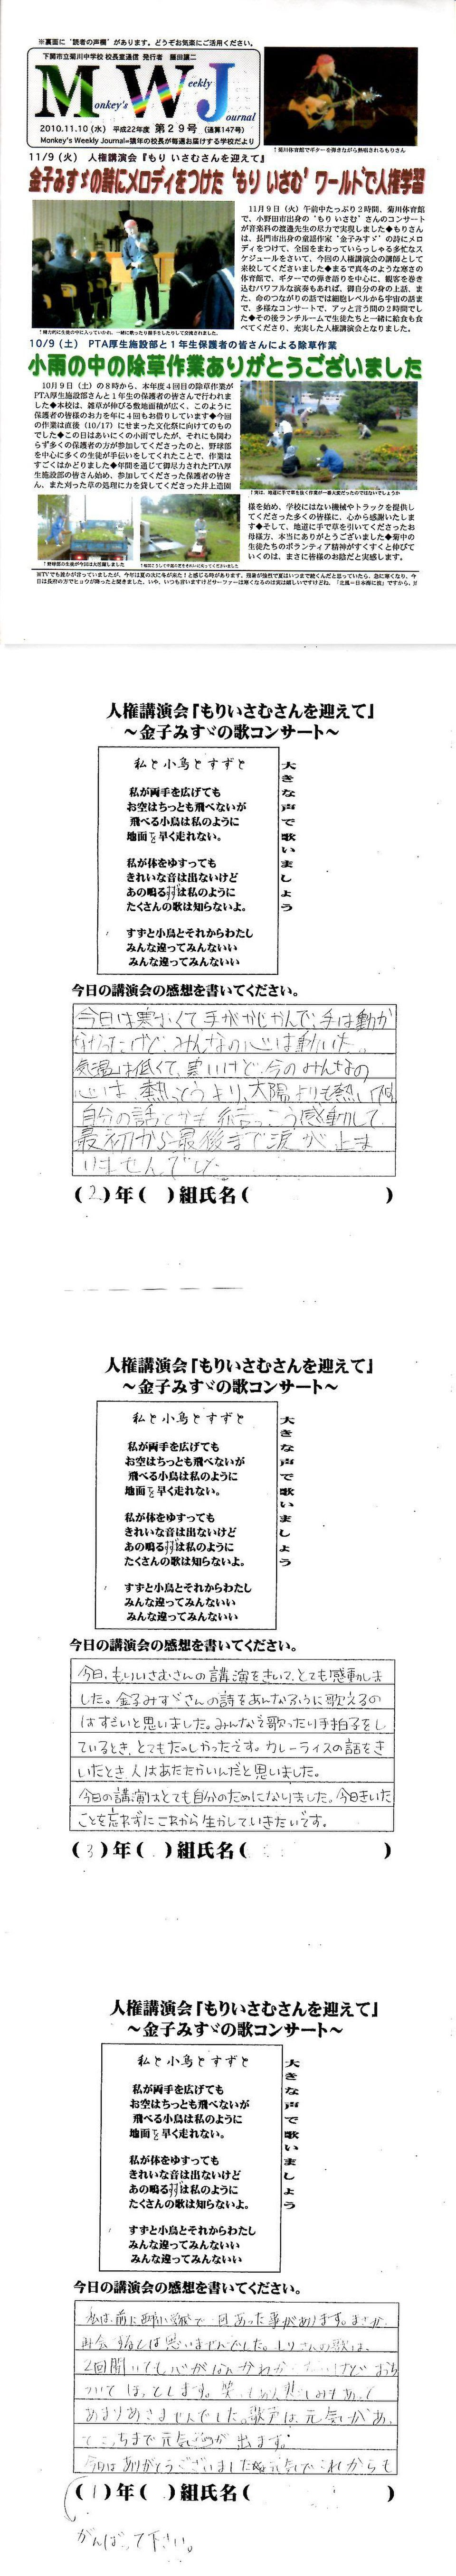 ※裏面に‘読者の声欄’があります。どうぞお気楽にご活用ください。
下関市立菊川中学校 校長室通信 発行者 藤田讓二
Monkey's Weekly Journal
2010.11.10(水) 平成22年度 第29号 (通算147号)
Monkey's Weekly Journal=猿年の校長が毎週お届けする学校だより
↑菊川体育館でギターを弾きながら熱唱されるもりさん
11/9(火) 人権講演会『もり いさむさんを迎えて』
金子みすゞの詩にメロディをつけた‘もり いさむ’ワールドで人権学習
11月9日(火)午前中たっぷり2時間、菊川体育館
で、小野田市出身の‘もり いさむ’さんのコンサート
が音楽科の渡邊先生の尽力で実現しました◆もりさん
は、長門市出身の童謡作家‘金子みすゞ’の詩にメロ
ディをつけて、全国をまわっていらっしゃる多忙なス
ケジュールをさいて、今回の人権講演会の講師として
来校してくださいました◆まるで真冬のような寒さの
体育館で、ギターでの弾き語りを中心に、観客を巻き
込むパワフルな演奏もあれば、御自分の身の上話、ま
た、命のつながりの話では細胞レベルから宇宙の話ま
で、多様なコンサートで、アッと言う間の2時間でし
た◆その後ランチルームで生徒たちと一緒に給食も食
べてくださり、充実した人権講演会となりました。
↑精力的に生徒の中に入っていかれ、一緒に歌ったり握手をしたりして交流されました。
10/9(土) PTA厚生施設部と1年生保護者の皆さんによる除草作業
小雨の中の除草作業ありがとうございました
10月9日(土)の8時から、本年度4回目の除草作業が
PTA厚生施設部さんと1年生の保護者の皆さんで行われま
した◆本校は、雑草が伸びる敷地面積が広く、このように
保護者の皆様のお力を年に4回もお借りしています◆今回
の作業は直後(10/17)にせまった文化祭に向けてのもの
でした◆この日はあいにくの小雨でしたが、それにも関わ
らず多くの保護者の方が参加してくださったのと、野球部
を中心に多くの生徒が手伝いをしてくれたことで、作業は
すごくはかどりました◆年間を通じて御尽力されたPTA厚
生施設部の皆さん始め、参加してくださった保護者の皆さ
ん、また刈った草の処理に力を貸してくださった井上造園
↑実は、地道に手で草を抜く作業が一番大変だったのではないでしょうか
様を始め、学校にはない機械やトラックを提供し
てくださった多くの皆様に、心から感謝いたしま
す◆そして、地道に手で草を引いてくださったお
母様方、本当にありがとうございました◆菊中の
生徒たちのボランティア精神がすくすくと伸びて
いくのは、まさに皆様のお陰だと実感します。
↑野球部の生徒が今回は大活躍しました
人権講演会「もりいさむさんを迎えて」
～金子みすゞの歌コンサート～
私と小鳥とすずと
大きな声で歌いましょう
私が両手を広げても
お空はちっとも飛べないが
飛べる小鳥は私のように
地面を早く走れない。
私が体をゆすっても
きれいな音は出ないけど
あの鳴るすずは私のように
たくさんの歌は知らないよ。
すずと小鳥とそれからわたし
みんな違ってみんないい
みんな違ってみんないい
今日の講演会の感想を書いてください。
今日は寒くて手がかじかんで、手は動か
なかったけど、みんなの心は動いた。
気温は低くて、寒いけど、今のみんなの
心は、熱っとうより、太陽よりも熱い
自分の話とかも 結っこう感動して
最初から最後まで涙が止ま
りませんでした
(2)年( )組氏名( )
人権講演会「もりいさむさんを迎えて」
～金子みすゞの歌コンサート～
私と小鳥とすずと
大きな声で歌いましょう
私が両手を広げても
お空はちっとも飛べないが
飛べる小鳥は私のように
地面を早く走れない。
私が体をゆすっても
きれいな音は出ないけど
あの鳴るすずは私のように
たくさんの歌は知らないよ。
すずと小鳥とそれからわたし
みんな違ってみんないい
みんな違ってみんないい
今日の講演会の感想を書いてください。
今日、もりいさむさんの講演をきいて、とても感動しま
した。金子みすゞさんの詩をあんなふうに歌えるの
はすごいと思いました。みんなで歌ったり手拍子をし
ているとき、とてもたのしかったです。カレーライスの話をき
いたとき、人はあたたかいんだと思いました。
今日の講演はとても自分のためになりました。今日きいた
ことを忘れずにこれから生かしていきたいです。
(3)年( )組氏名( )
人権講演会「もりいさむさんを迎えて」
～金子みすゞの歌コンサート～
私と小鳥とすずと
大きな声で歌いましょう
私が両手を広げても
お空はちっとも飛べないが
飛べる小鳥は私のように
地面を早く走れない。
私が体をゆすっても
きれいな音は出ないけど
あの鳴るすずは私のように
たくさんの歌は知らないよ。
すずと小鳥とそれからわたし
みんな違ってみんないい
みんな違ってみんないい
今日の講演会の感想を書いてください。
私は、前に 一回あった事があります。まさか、
再会するとは思いませんでした。もりさんの歌は、
2回聞いても心がなんか けど おち
ついて ほっとします。笑いもあり悲しみもあって
あまりあきませんでした。歌声は、元気があっ
てこっちまで元気 が出ます。
今日はありがとうございました 元気でこれからも
(1)年( )組氏名( )
がんばって下さい。